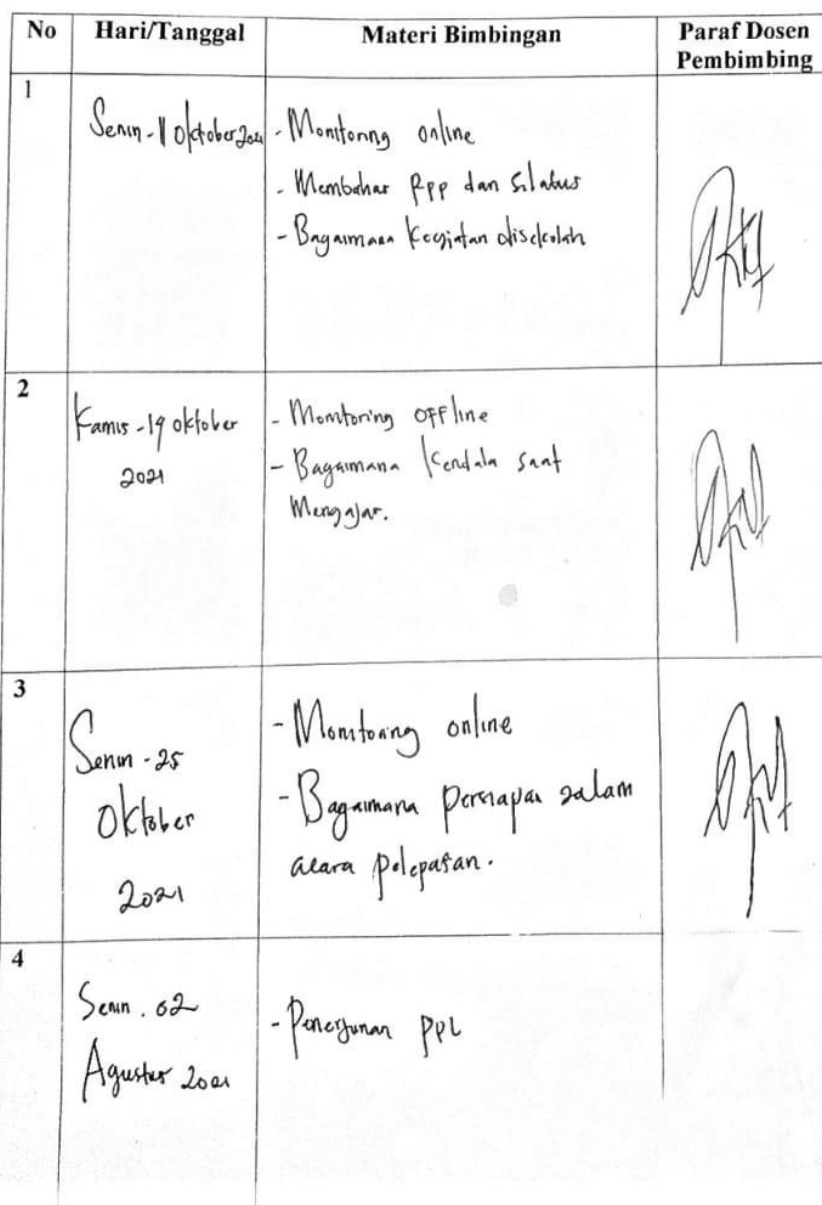 No Hari/Tanggal Materi Bimbingan Paraf Dosen Pembimbing
1
Senin - 11 Oktober 2021
- Monitoring online
- Membahas RPP dan Silabus
- Bagaimana Kegiatan disekolah
2
Kamis - 14 oktober
2021
- Monitoring offline
- Bagaimana Kendala saat
Mengajar.
3
Senin - 25
Oktober
2021
- Monitoring online
- Bagaimana persiapan dalam
acara pelepasan.
4
Senin . 02
Agustus 2021
- Penerjunan PPL